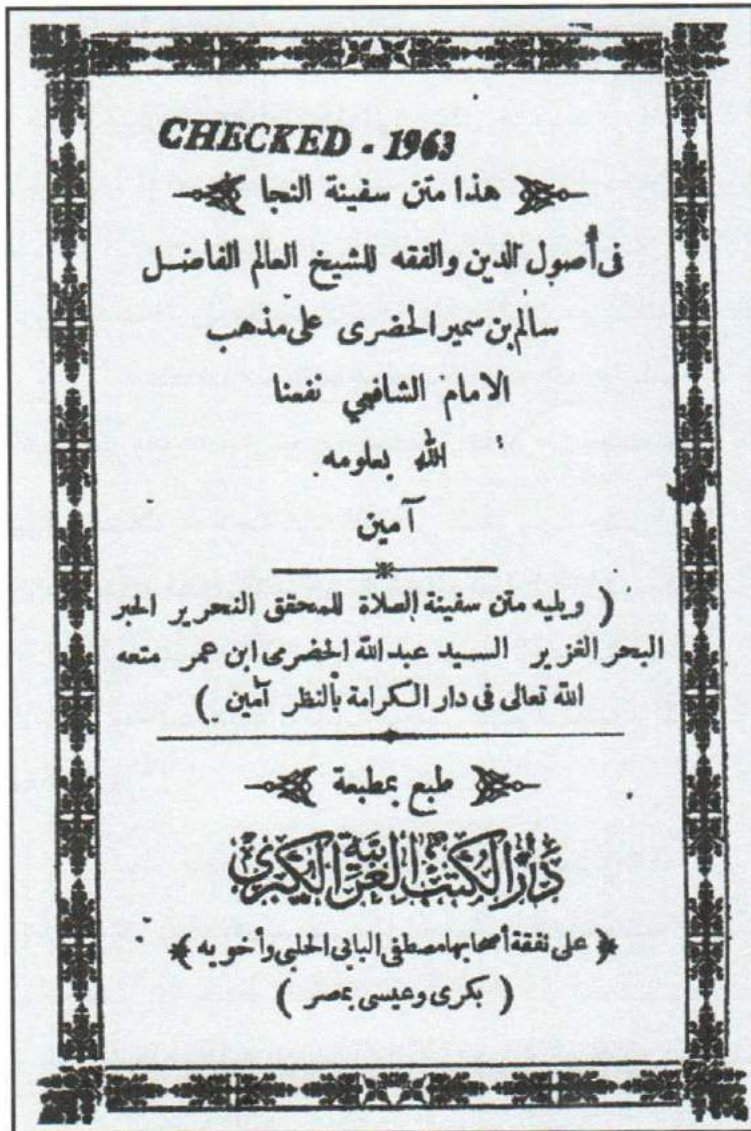 CHECKED - 1963
هذا متن سفينة النجا
فى أصول الدين والفقه للشيخ العالم الفاضل
سالم بن سمير الحضرى على مذهب
الامام الشافعي نفعنا
الله بعلومه
آمين
( ويليه متن سفينة الصلاة للمحقق النحرير الحبر
البحر الغزير السيد عبد الله الحضرمى ابن عمر متعه
الله تعالى فى دار الكرامة بالنظر آمين )
طبع بمطبعة
دار الكتب العربية الكبرى
على نفقة أصحابها مصطفى البابى الحلبى وأخويه
( بكرى وعيسى بمصر )